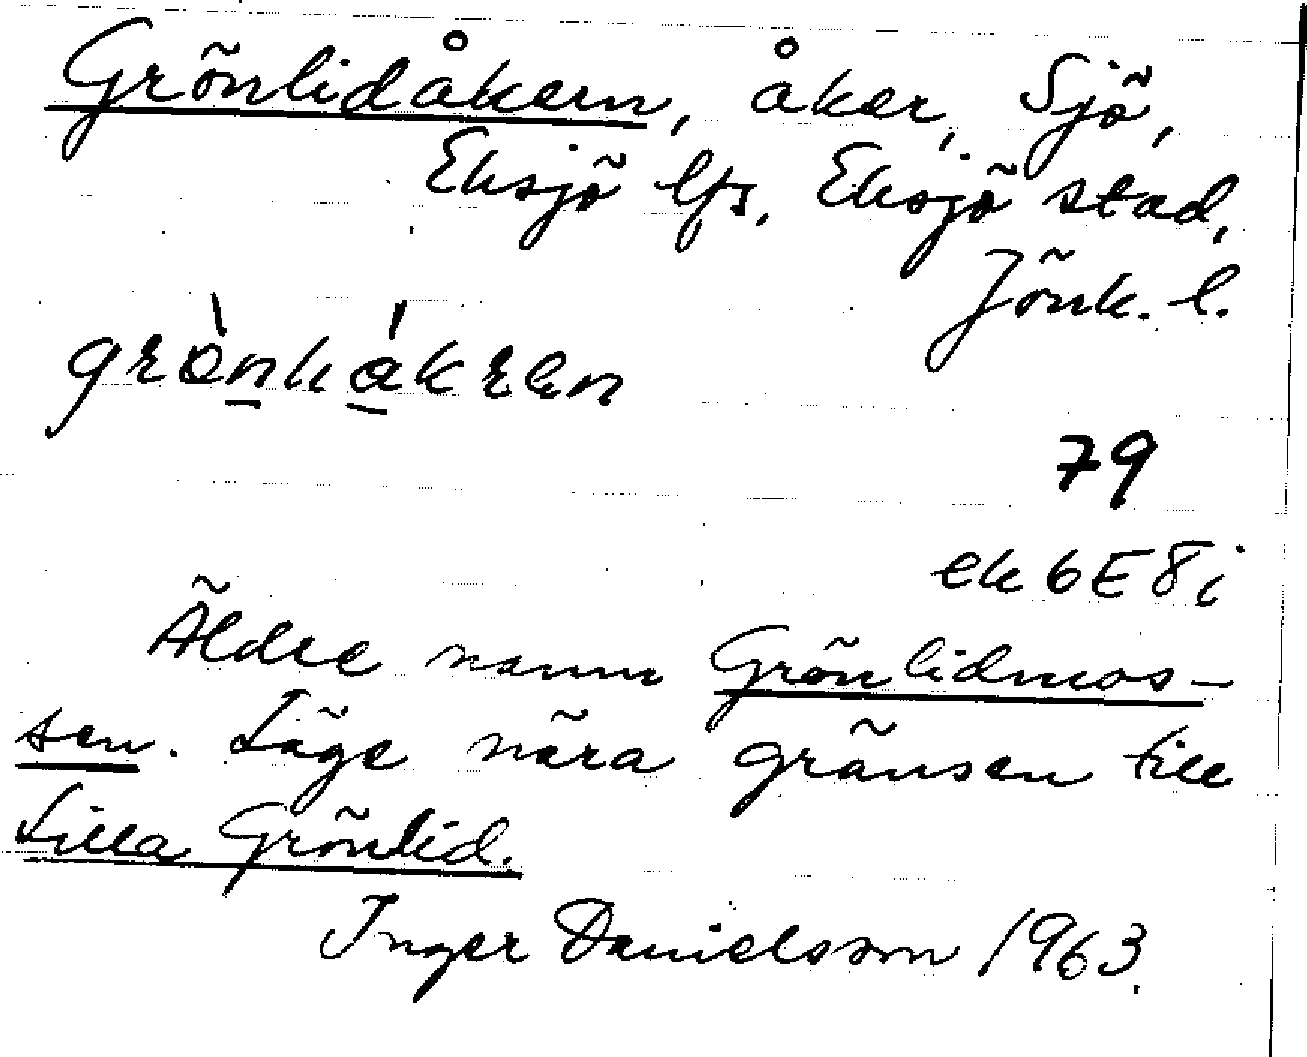 Grönlidåkern, åker, Sjö,
Eksjö lfs, Eksjö stad,
Jönk. l.
grö̀nkákren
79
ek 6E8i
Äldre namn Grönlidmos-
sen. Läge nära gränsen till
Lilla Grönlid.
Inger Danielsson 1963.